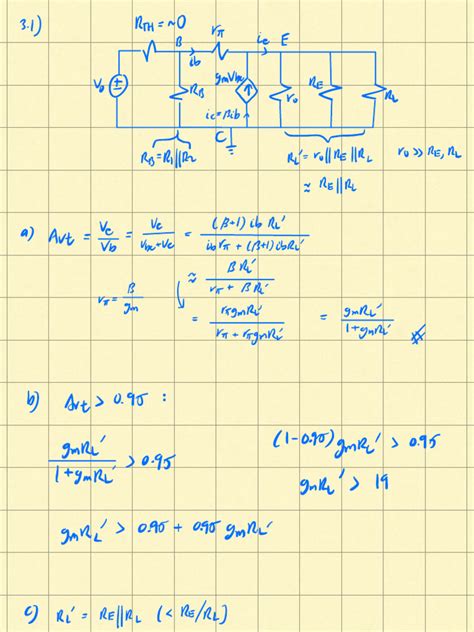 3.1)
RTH = ~0
B
rπ
ie
E
ib
Vb
RB
gmVbe
ro
RE
RL
ic = βib
C
RB = R1 || R2
RL' = ro || RE || RL
ro >> RE, RL
≈ RE || RL
a) Avt = Ve/Vb = Ve/(Vbe+Ve) = (β+1) ib RL' / (ib rπ + (β+1) ib RL')
≈ β RL' / (rπ + β RL')
rπ = β/gm
= rπ gm RL' / (rπ + rπ gm RL') = gm RL' / (1 + gm RL')
b) Avt > 0.95 :
gm RL' / (1 + gm RL') > 0.95
(1 - 0.95) gm RL' > 0.95
gm RL' > 19
gm RL' > 0.95 + 0.95 gm RL'
c) RL' = RE || RL (< RE/RL)